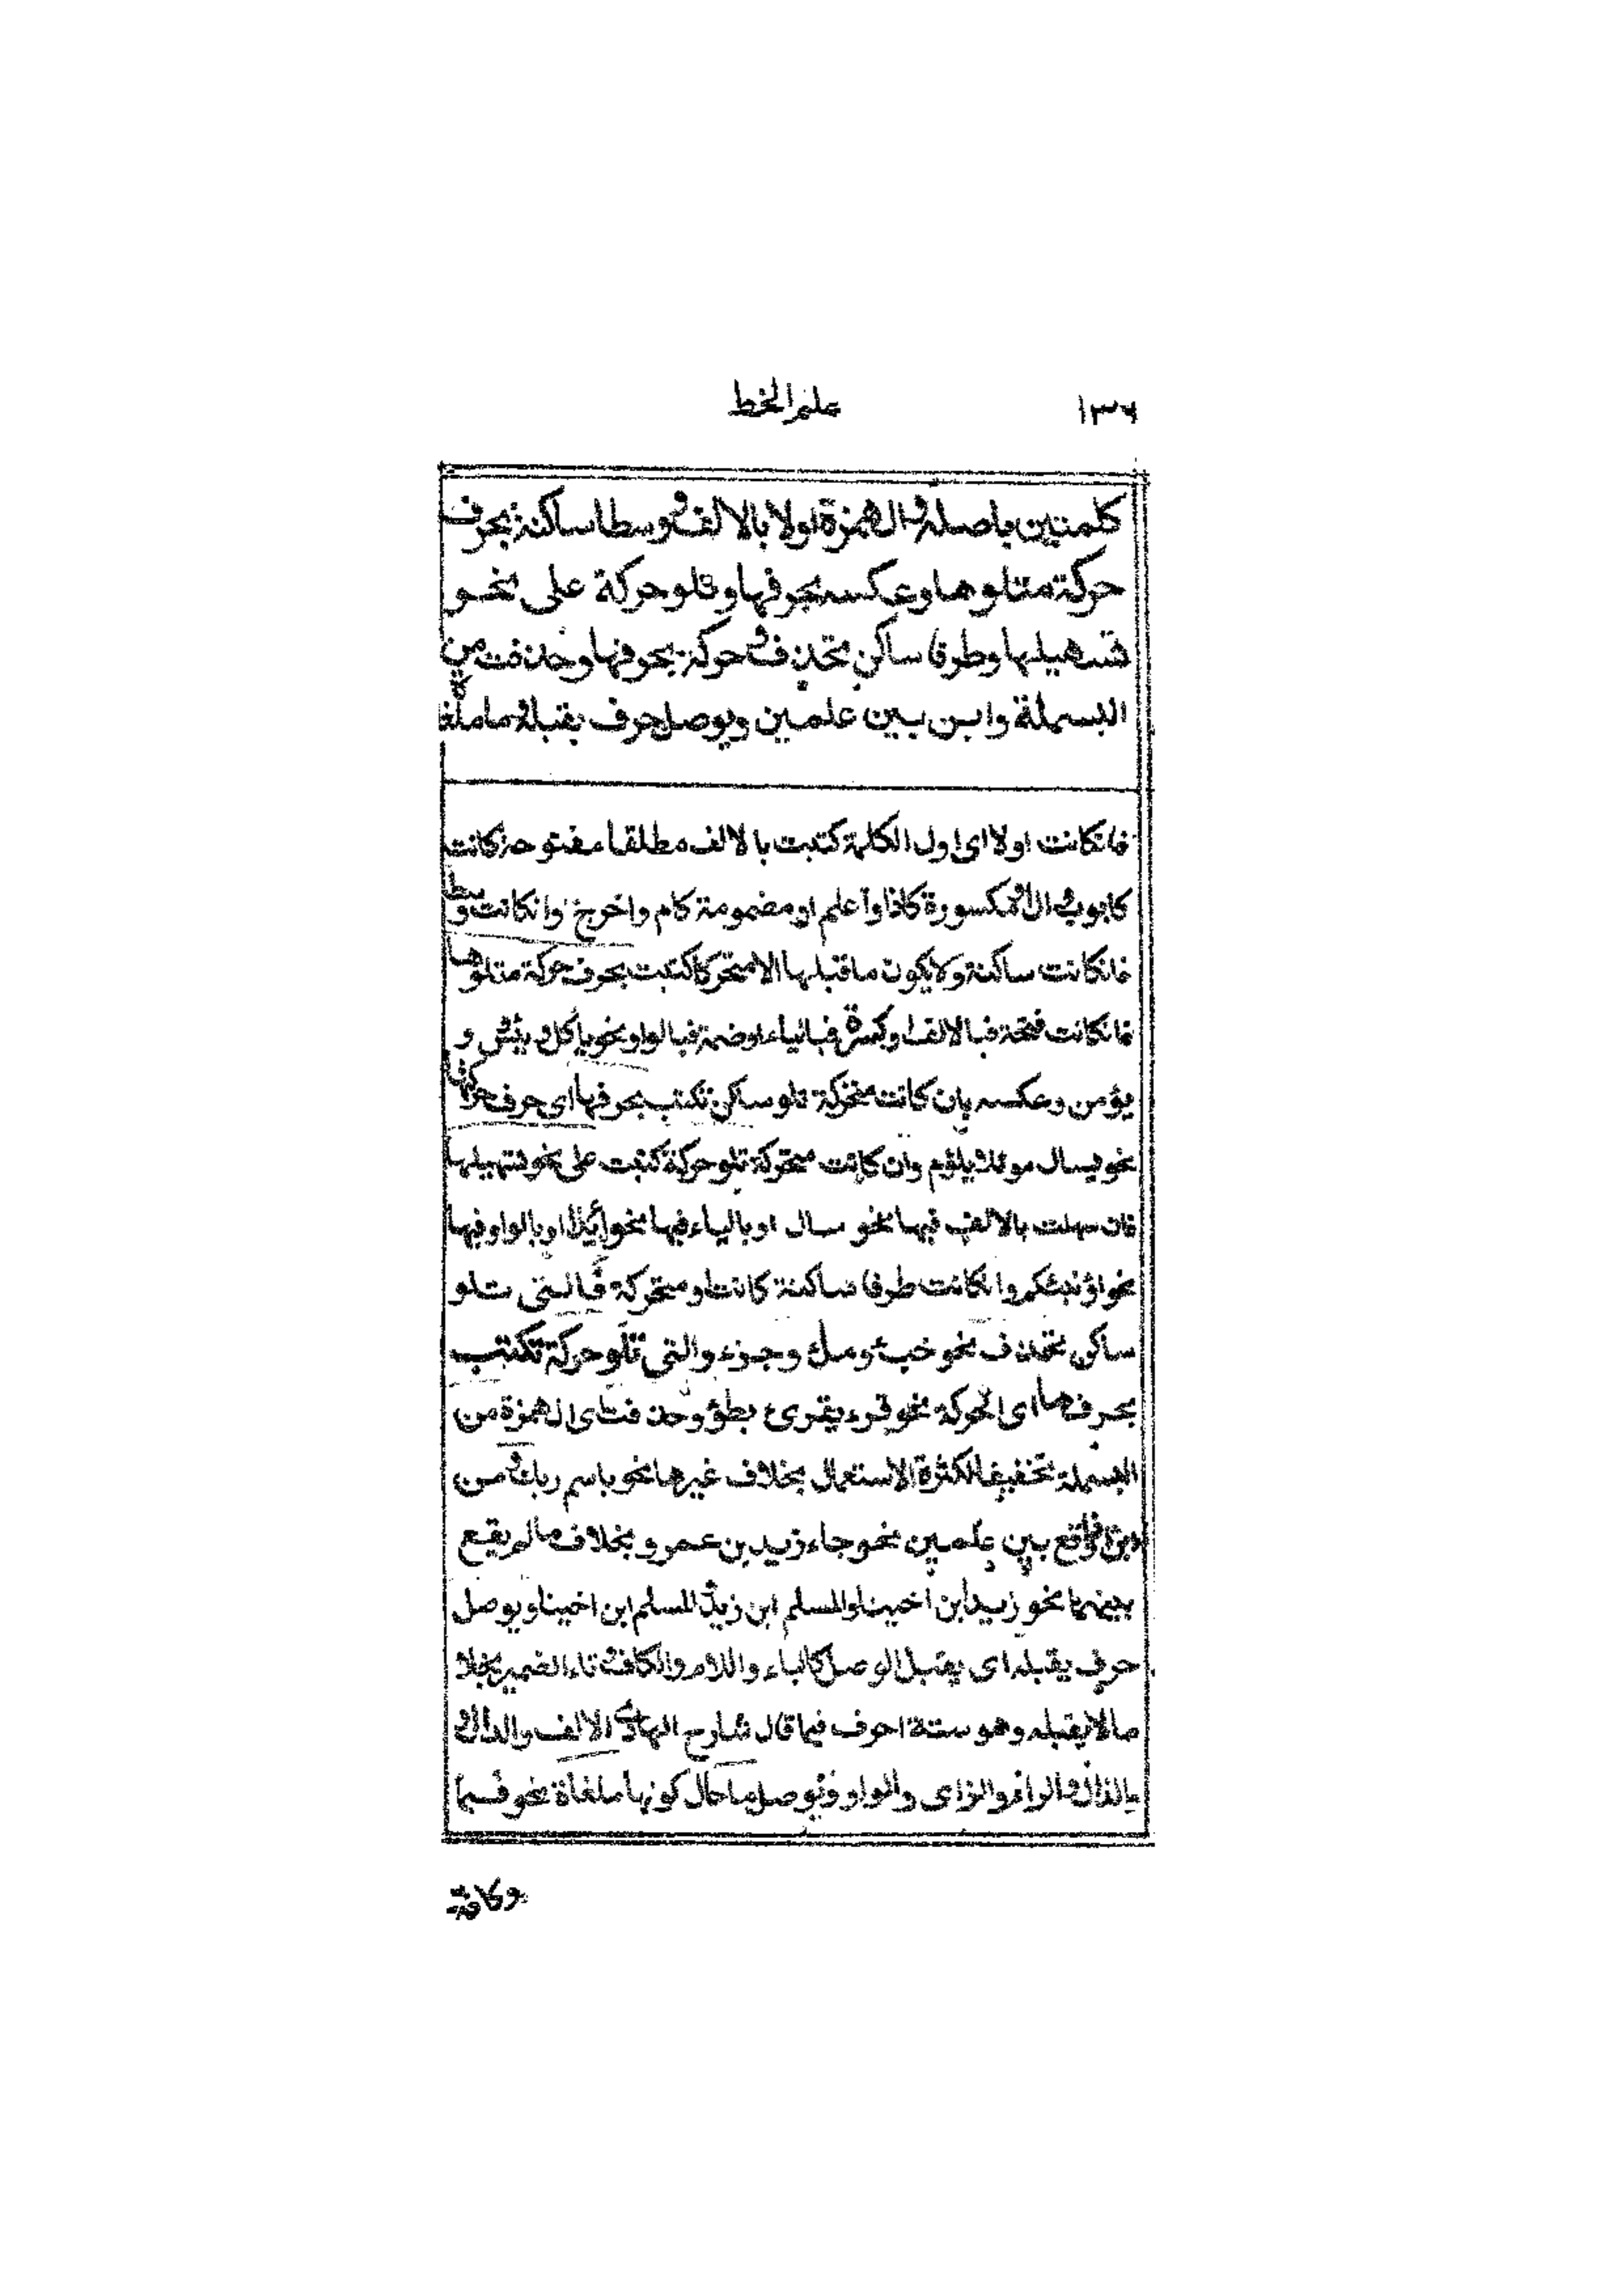 ١٣٦ علم الخط
كلمتين باصله والهمزة اولا بالالف ووسطا ساكنة بحرف
حركة متلوها وعكسه بحرفها وتلو حركة على نحو
تسهيلها وطرفا ساكن تحذف وحركة بحرفها وحذفت من
البسملة وابن بين علمين ويوصل حرف يقبله وما ملغاة
فانكانت اولا اى اول الكلمة كتبت بالالف مطلقا مفتوحة كانت
كايوب او مكسورة كاذا واعلم او مضمومة كام واخرج وانكانت وسطا
فانكانت ساكنة ولا يكون ما قبلها الا متحركا كتبت بحرف حركة متلوها
فانكانت فتحة فبالالف او كسرة فبالياء او ضمة فبالواو نحو يأكل وبئس و
يؤمن وعكسه بان كانت متحركة تلو ساكن تكتب بحرفها اى حرف حركتها
نحو يسال موئلا يلؤم وان كانت متحركة تلو حركة كتبت على نحو تسهيلها
فان سهلت بالالف فبها نحو سال او بالياء فبها نحو ائذا او بالواو فبها
نحو اؤنبئكم وانكانت طرفا ساكنة كانت او متحركة فالتى تتلو
ساكن تحذف نحو خبء وملء وجزء والتى تتلو حركة تكتب
بحرفها اى الحركة نحو قرء يقرئ بطؤ وحذفت اى الهمزة من
البسملة تخفيفا لكثرة الاستعمال بخلاف غيرها نحو باسم ربك ومن
ابن الواقع بين علمين نحو جاء زيد بن عمرو بخلاف مالم يقع
بينهما نحو زيد ابن اخينا والمسلم ابن زيد والمسلم ابن اخينا ويوصل
حرف يقبله اى يقبل الوصل كالباء واللام والكاف وتاء الضمير بخلاف
مالا يقبله وهو ستة احرف فيما قال شارح الهادى الالف والدال و
والذال والراء والزاى والواو وتوصل ما حال كونها ملغاة نحو فبما
وكافة